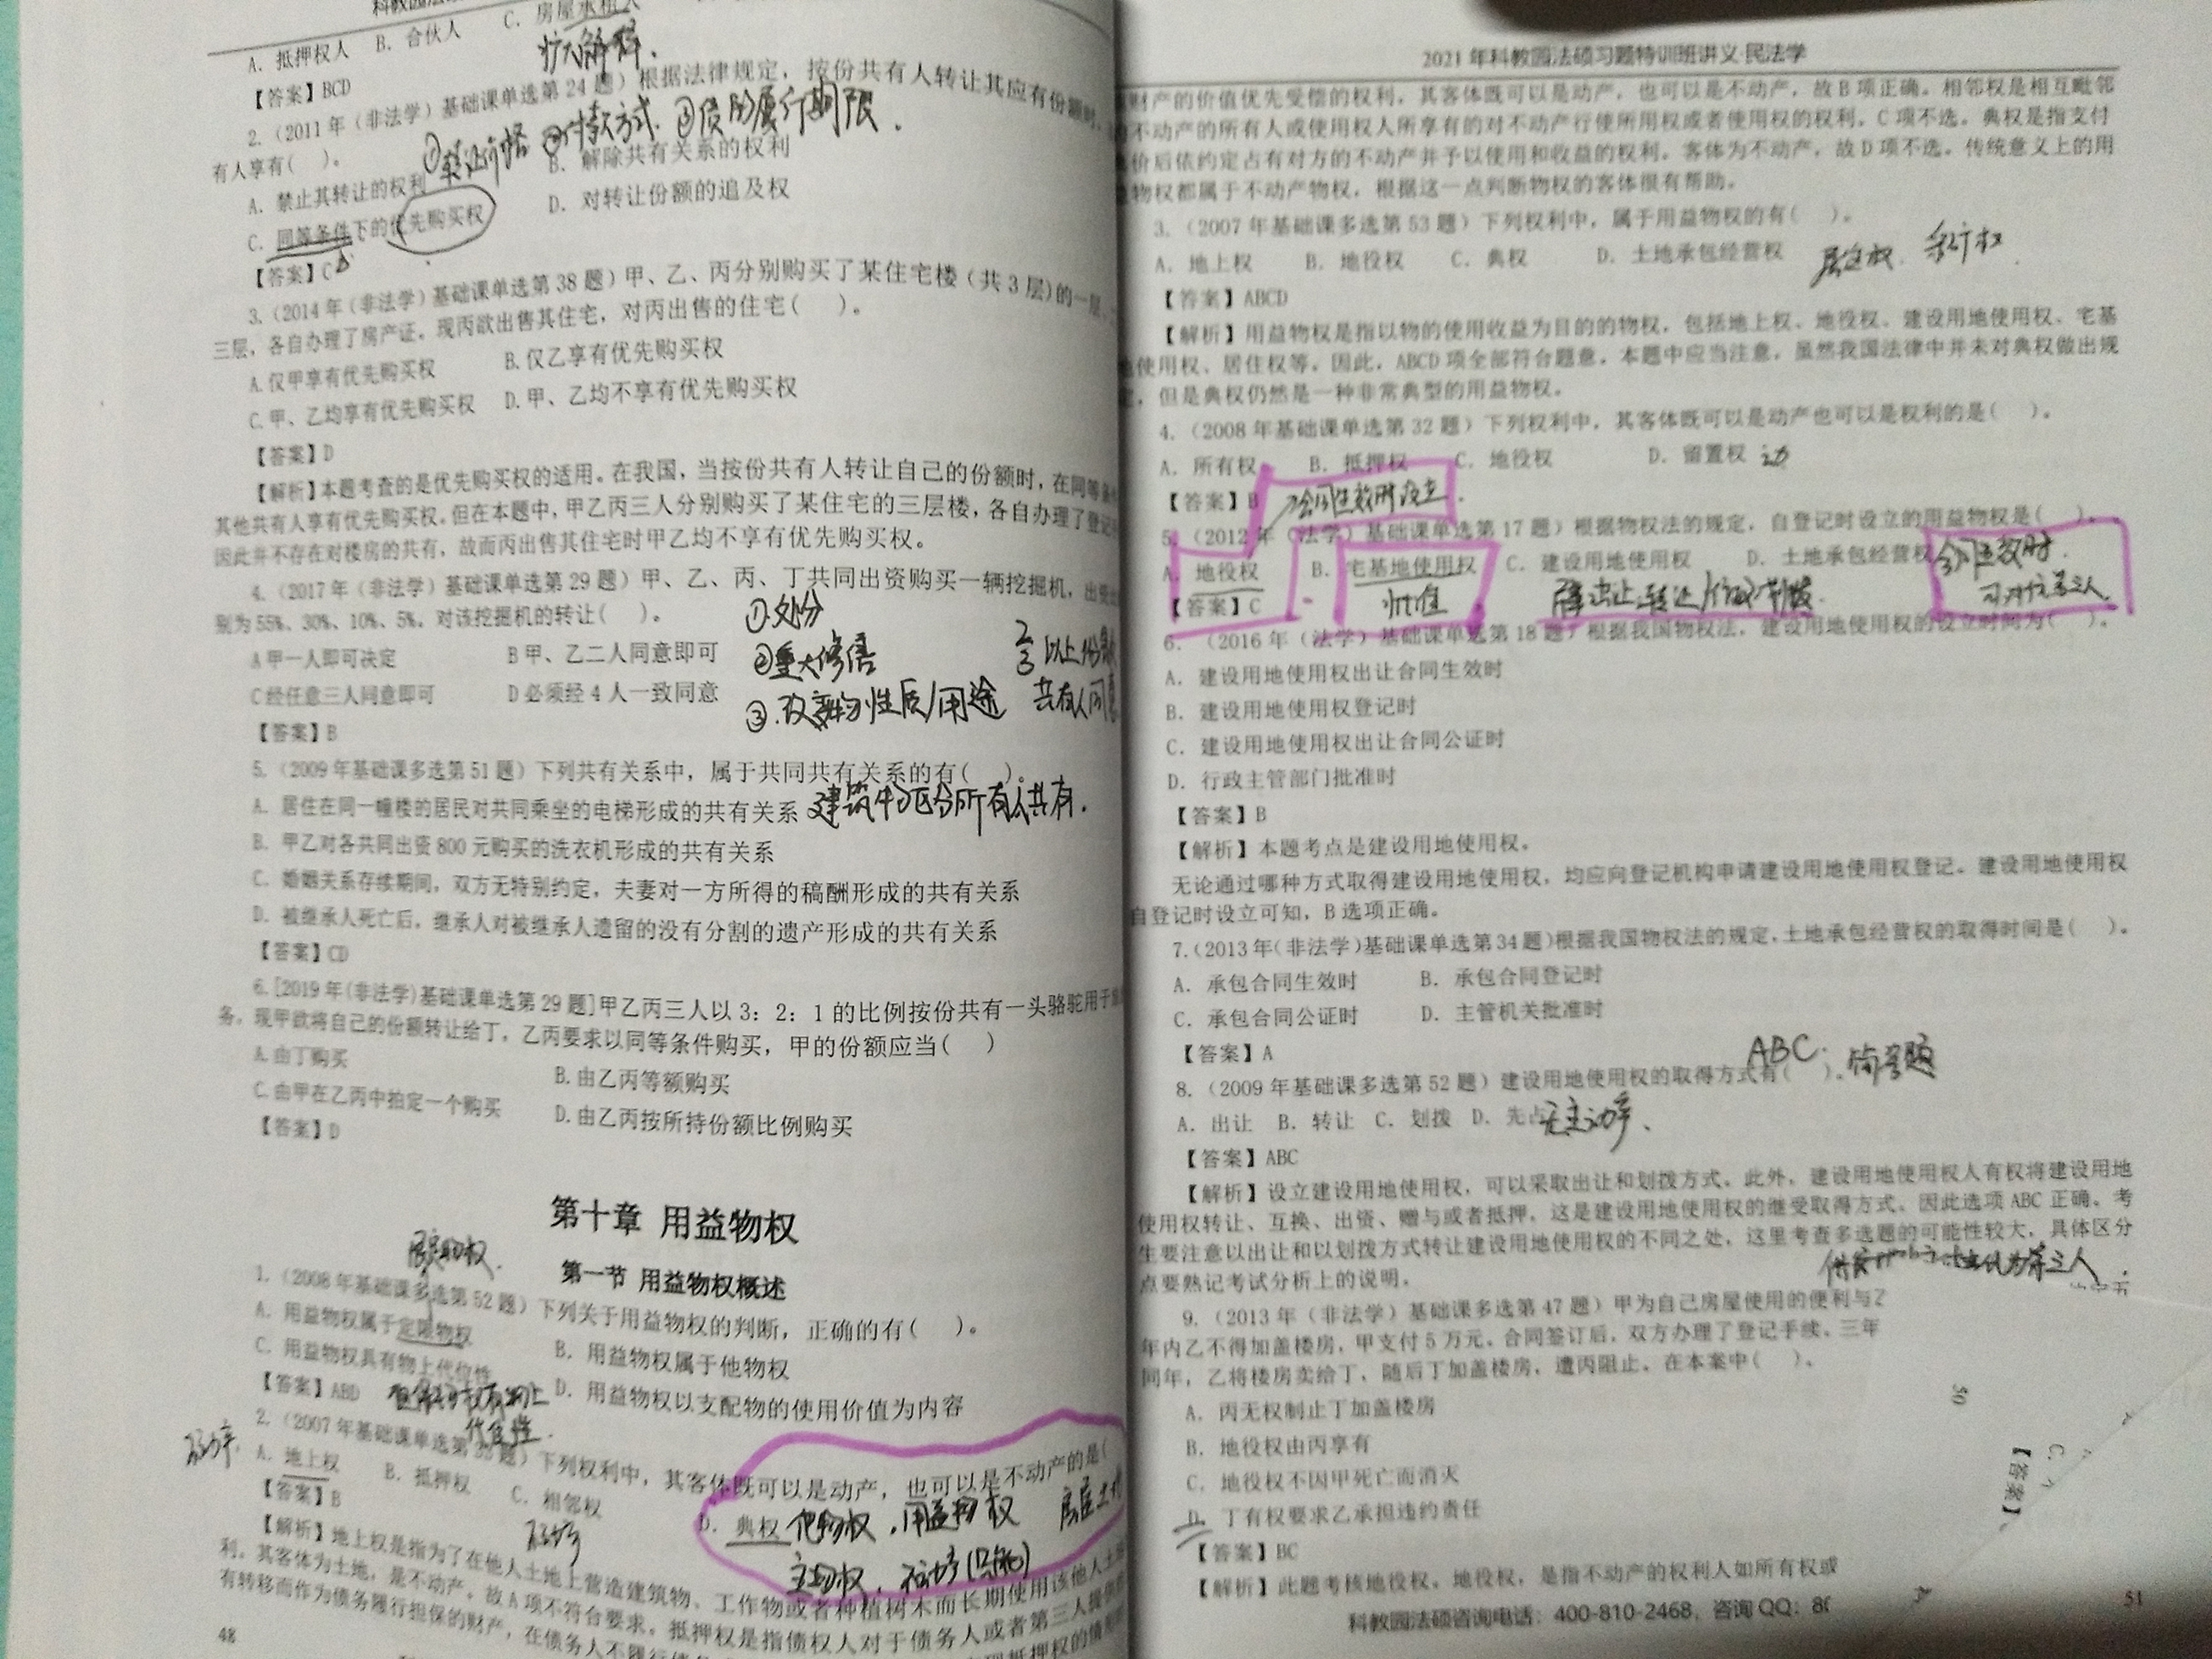 A. 抵押权人 B. 合伙人 C. 房屋承租人
扩大解释.
【答案】BCD
2.（2011年（非法学）基础课单选第24题）根据法律规定，按份共有人转让其应有份额时，
有人享有（ ）。
①转让价格 ②付款方式. ③债的履行期限.
A. 禁止其转让的权利 B. 解除共有关系的权利
C. 同等条件下的优先购买权 D. 对转让份额的追及权
【答案】C
3.（2014年（非法学）基础课单选第38题）甲、乙、丙分别购买了某住宅楼（共3层）的一层、
三层，各自办理了房产证。现丙欲出售其住宅，对丙出售的住宅（ ）。
A.仅甲享有优先购买权 B.仅乙享有优先购买权
C.甲、乙均享有优先购买权 D.甲、乙均不享有优先购买权
【答案】D
【解析】本题考查的是优先购买权的适用。在我国，当按份共有人转让自己的份额时，在同等条件
其他共有人享有优先购买权。但在本题中，甲乙丙三人分别购买了某住宅的三层楼，各自办理了登记
因此并不存在对楼房的共有，故而丙出售其住宅时甲乙均不享有优先购买权。
4.（2017年（非法学）基础课单选第29题）甲、乙、丙、丁共同出资购买一辆挖掘机，出资
别为55%、30%、10%、5%。对该挖掘机的转让（ ）。
A甲一人即可决定 B甲、乙二人同意即可
C经任意三人同意即可 D必须经4人一致同意
①.处分
②重大修缮
③.改变物性质/用途
2/3以上份额
共有人同意
【答案】B
5.（2009年基础课多选第51题）下列共有关系中，属于共同共有关系的有（ ）。
A. 居住在同一幢楼的居民对共同乘坐的电梯形成的共有关系 建筑物区分所有公共有.
B. 甲乙对各共同出资800元购买的洗衣机形成的共有关系
C. 婚姻关系存续期间，双方无特别约定，夫妻对一方所得的稿酬形成的共有关系
D. 被继承人死亡后，继承人对被继承人遗留的没有分割的遗产形成的共有关系
【答案】CD
6.[2019年(非法学)基础课单选第29题]甲乙丙三人以3：2：1的比例按份共有一头骆驼用于
务。现甲欲将自己的份额转让给丁，乙丙要求以同等条件购买，甲的份额应当（ ）
A.由丁购买 B.由乙丙等额购买
C.由甲在乙丙中拍定一个购买 D.由乙丙按所持份额比例购买
【答案】D
第十章 用益物权
第一节 用益物权概述
1.（2008年基础课多选第52题）下列关于用益物权的判断，正确的有（ ）。
A. 用益物权属于定限物权 B. 用益物权属于他物权
C. 用益物权具有物上代位性 D. 用益物权以支配物的使用价值为内容
【答案】ABD 担保物权有物上
代位性.
2.（2007年基础课单选第33题）下列权利中，其客体既可以是动产，也可以是不动产的是（
A. 地上权 B. 抵押权 C. 相邻权 D. 典权 他物权，用益物权
主物权，不动产(只能)
【答案】B
【解析】地上权是指为了在他人土地上营造建筑物、工作物或者种植树木而长期使用该他人土
利。其客体为土地，是不动产。故A项不符合要求。抵押权是指债权人对于债务人或者第三人提供
有转移而作为债务履行担保的财产，在债务人不履行债
48
2021年科教园法硕习题特训班讲义·民法学
财产的价值优先受偿的权利，其客体既可以是动产，也可以是不动产，故B项正确。相邻权是相互毗邻
不动产的所有人或使用权人所享有的对不动产行使所用权或者使用权的权利，C项不选。典权是指支付
价后依约定占有对方的不动产并予以使用和收益的权利，客体为不动产，故D项不选。传统意义上的用
物权都属于不动产物权，根据这一点判断物权的客体很有帮助。
3.（2007年基础课多选第53题）下列权利中，属于用益物权的有（ ）。
A. 地上权 B. 地役权 C. 典权 D. 土地承包经营权 居住权. 采矿权
【答案】ABCD
【解析】用益物权是指以物的使用收益为目的的物权，包括地上权、地役权、建设用地使用权、宅基
使用权、居住权等。因此，ABCD项全部符合题意。本题中应当注意，虽然我国法律中并未对典权做出规
，但是典权仍然是一种非常典型的用益物权。
4.（2008年基础课单选第32题）下列权利中，其客体既可以是动产也可以是权利的是（ ）。
A. 所有权 B. 抵押权 C. 地役权 D. 留置权 动
【答案】B 合同生效时设立.
5.（2012年（法学）基础课单选第17题）根据物权法的规定，自登记时设立的用益物权是（ ）。
A. 地役权 B. 宅基地使用权 C. 建设用地使用权 D. 土地承包经营权 合同生效时.
【答案】C 批准
6.（2016年（法学）基础课单选第18题）根据我国物权法，建设用地使用权的设立时间为（ ）。
A. 建设用地使用权出让合同生效时
B. 建设用地使用权登记时
C. 建设用地使用权出让合同公证时
D. 行政主管部门批准时
【答案】B
【解析】本题考点是建设用地使用权。
无论通过哪种方式取得建设用地使用权，均应向登记机构申请建设用地使用权登记。建设用地使用权
自登记时设立可知，B选项正确。
7.（2013年(非法学)基础课单选第34题)根据我国物权法的规定，土地承包经营权的取得时间是（ ）。
A. 承包合同生效时 B. 承包合同登记时
C. 承包合同公证时 D. 主管机关批准时
【答案】A
ABC. 简答题
8.（2009年基础课多选第52题）建设用地使用权的取得方式有（ ）。
A. 出让 B. 转让 C. 划拨 D. 先占 无主动产.
【答案】ABC
【解析】设立建设用地使用权，可以采取出让和划拨方式。此外，建设用地使用权人有权将建设用地
使用权转让、互换、出资、赠与或者抵押，这是建设用地使用权的继受取得方式。因此选项ABC正确。考
生要注意以出让和以划拨方式转让建设用地使用权的不同之处，这里考查多选题的可能性较大，具体区分
点要熟记考试分析上的说明。
9.（2013年（非法学）基础课多选第47题）甲为自己房屋使用的便利与乙
年内乙不得加盖楼房，甲支付5万元。合同签订后，双方办理了登记手续。三年
同年，乙将楼房卖给丁，随后丁加盖楼房，遭丙阻止。在本案中（ ）。
A. 丙无权制止丁加盖楼房
B. 地役权由丙享有
C. 地役权不因甲死亡而消灭
D. 丁有权要求乙承担违约责任
【答案】BC
【解析】此题考核地役权。地役权，是指不动产的权利人如所有权或
科教园法硕咨询电话：400-810-2468，咨询QQ：8
50
【答案】
51